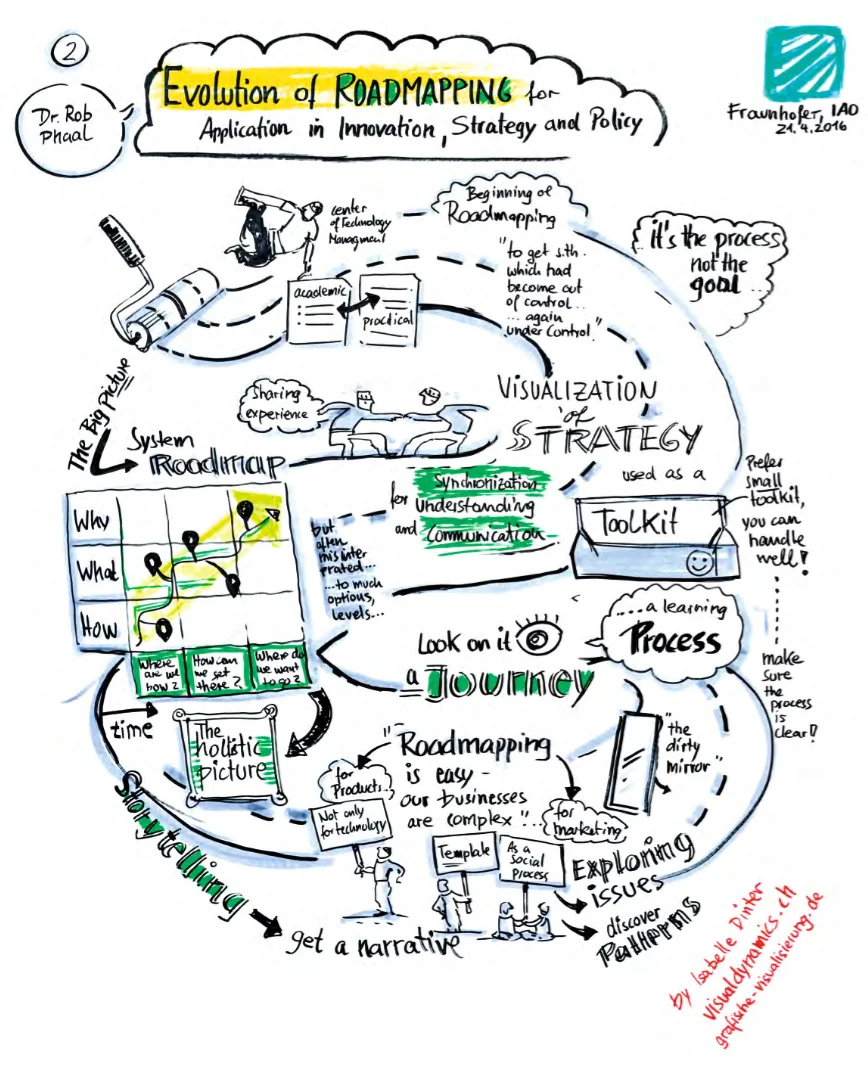 2
Dr. Rob
Phaal
Evolution of ROADMAPPING for
Application in Innovation, Strategy and Policy
Fraunhofer, IAO
21.4.2016
center
of Technology
Managment
Beginning of
Roadmapping
it's the process
not the
goal...
"to get s.th.
which had
become out
of control...
... again
under Control"
academic
practical
The Big picture
System
Roadmap
sharing
experience
VISUALIZATION
of
STRATEGY
used as a
Toolkit
Prefer
small
toolkit,
you can
handle
well!
make
sure
the
process
is
clear!
for Synchronization
Understanding
and Communication
but
often
misinter
prated...
...to much
options,
levels...
Why
What
How
Where
are we
now?
How can
we get
there?
Where do
we want
to go?
time
The
holistic
picture
Look on it
a Journey
....a learning
Process
"the
dirty
mirror"
"Roadmapping
is easy -
our businesses
are complex"...
for
Products...
for
marketing
Not only
for technology
Template
As a
Social
Process
Exploring
issues
discover
Patterns
Storytelling
get a narrative
by Isabelle Dinter
visualdynamics.ch
grafische-visualisierung.de